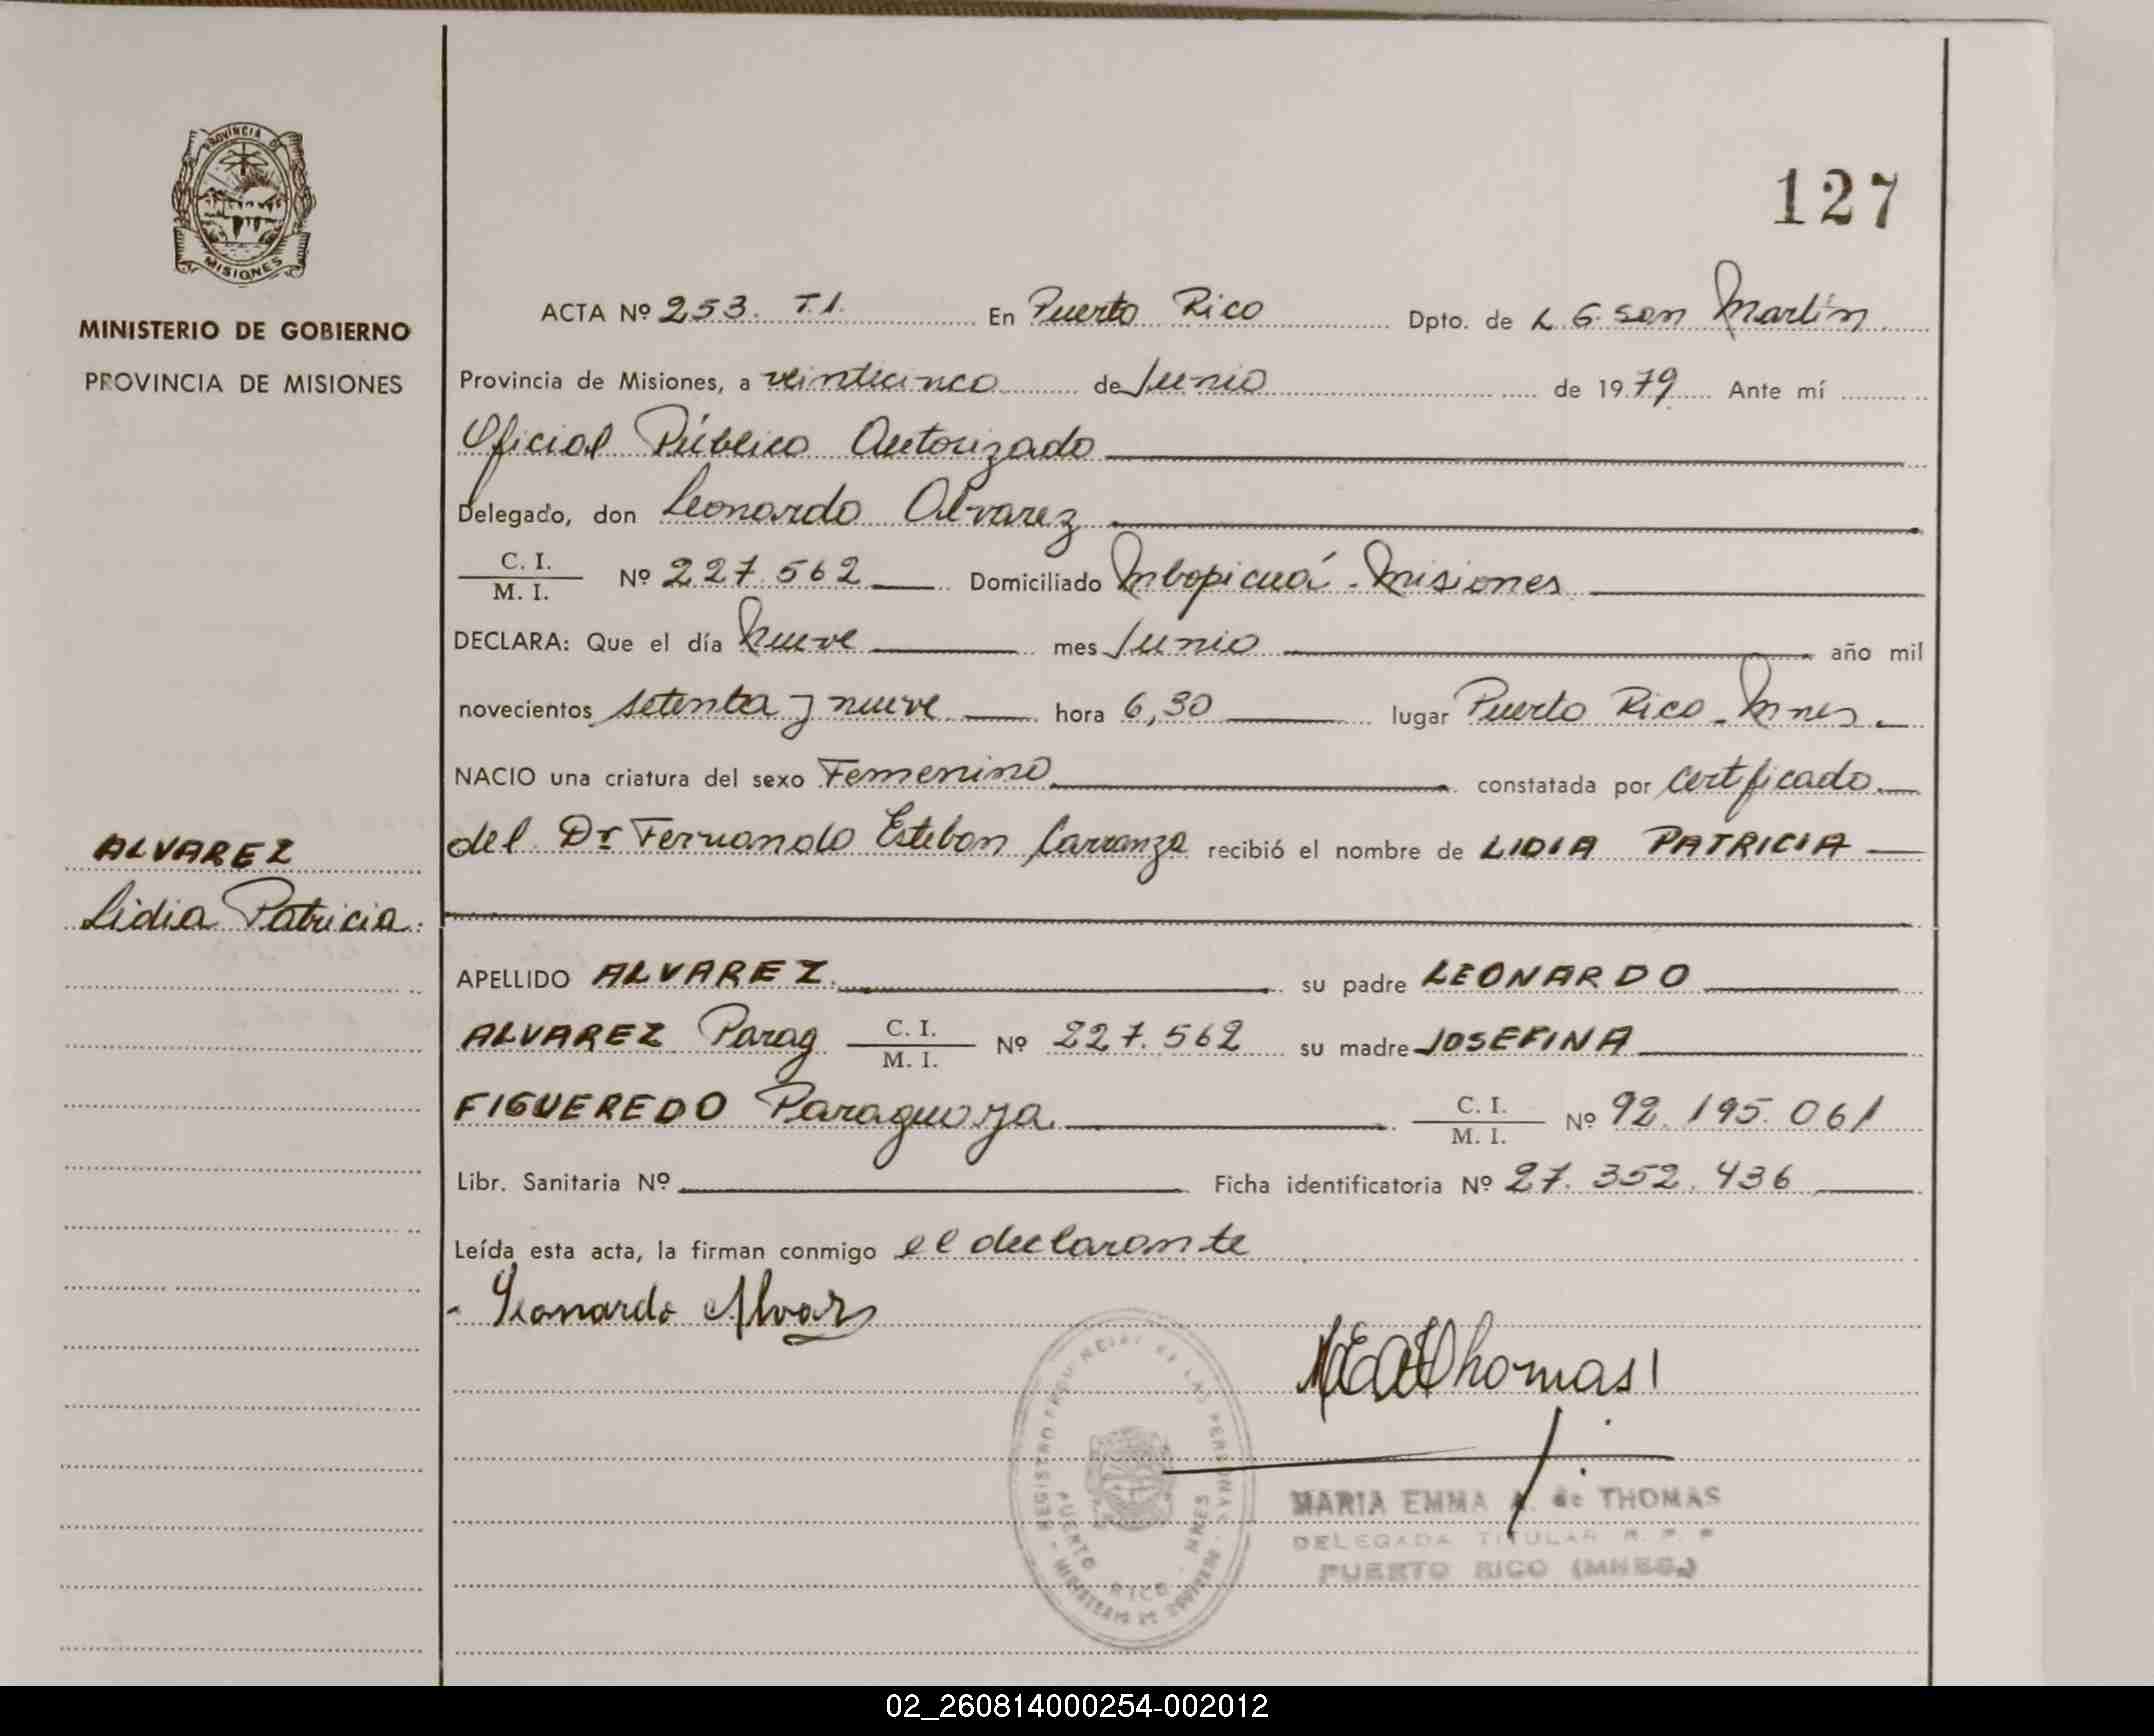 PROVINCIA DE
MISIONES
MINISTERIO DE GOBIERNO
PROVINCIA DE MISIONES
ALVAREZ
Lidia Patricia.
127
ACTA Nº 253. T.1. En Puerto Rico Dpto. de L G. San Martín
Provincia de Misiones, a veinticinco de Junio de 1979 Ante mí
Oficial Público Autorizado
Delegado, don Leonardo Alvarez
C. I.
M. I. Nº 227.562 Domiciliado Mbopicuá - Misiones
DECLARA: Que el día Nueve mes Junio año mil
novecientos setenta y nueve hora 6,30 lugar Puerto Rico - Mnes.
NACIO una criatura del sexo Femenino constatada por certficado
del Dr Fernando Esteban Carranza recibió el nombre de LIDIA PATRICIA
APELLIDO ALVAREZ su padre LEONARDO
ALVAREZ Parag C. I.
M. I. Nº 227.562 su madre JOSEFINA
FIGUEREDO Paraguaya C. I.
M. I. Nº 92.195.061
Libr. Sanitaria Nº Ficha identificatoria Nº 27.352.436
Leída esta acta, la firman conmigo el declarante
Leonardo Alvarez
MEAThomas
REGISTRO PROVINCIAL DE LAS PERSONAS
PUERTO RICO - MNES
MINISTERIO DE GOBIERNO
MARIA EMMA A. de THOMAS
DELEGADA TITULAR R. P. P
PUERTO RICO (MNES.)
02_260814000254-002012